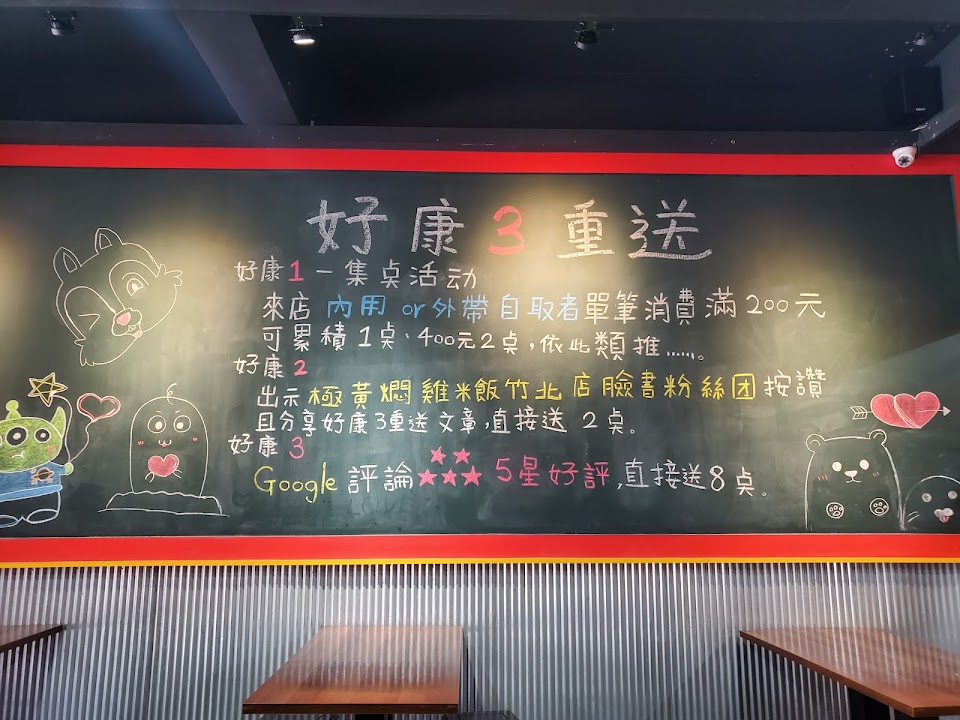 好康3重送
好康1－集点活动
來店 內用 or 外帶自取者單筆消費滿200元
可累積1点、400元2点,依此類推......。
好康2
出示極黃燜雞米飯竹北店臉書粉絲团按讚
且分享好康3重送文章,直接送 2点。
好康3
Google 評論★★★★★5星好評,直接送8点。